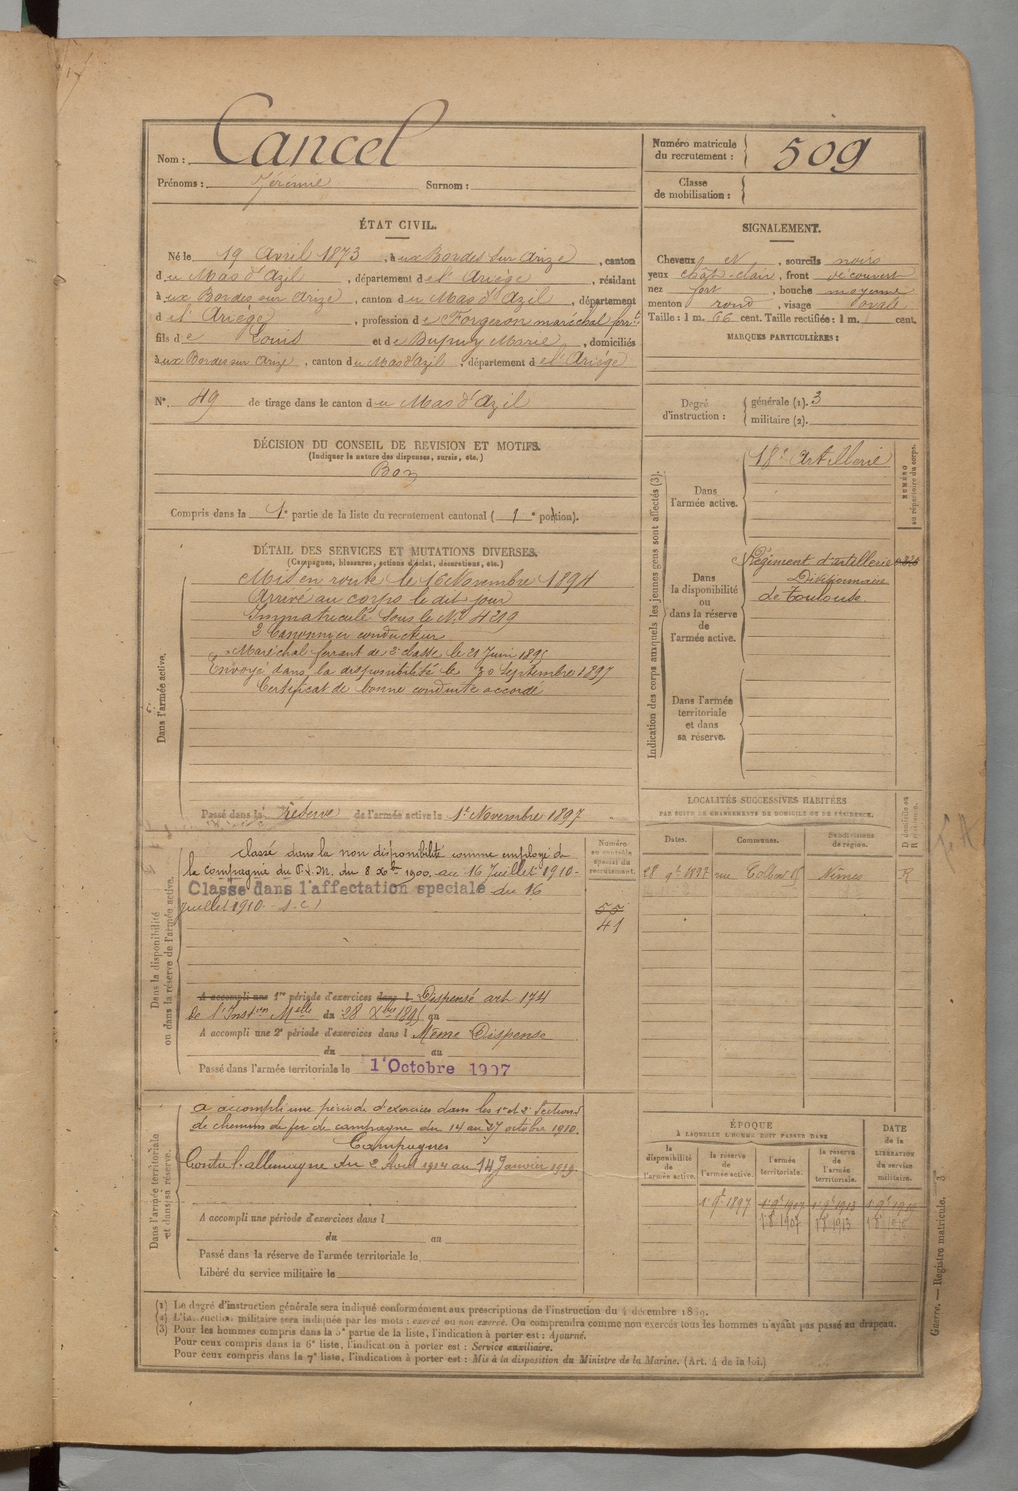 Nom : Cancel
Prénoms : Jérémie Surnom :
Numéro matricule du recrutement : 509
Classe de mobilisation :
ÉTAT CIVIL.
Né le 19 Avril 1873, à ux Bordes sur Arize, canton
d u Mas d'Azil, département d e l'Ariège, résidant
à ux Bordes sur Arize, canton d u Mas d'Azil, département
d e l'Ariège, profession d e Forgeron maréchal ferrt
fils d e Louis et d e Dupuy Marie, domiciliés
à ux Bordes sur Arize, canton d u Mas d'Azil, département d e l'Ariège
N° 49 de tirage dans le canton d u Mas d'Azil
SIGNALEMENT.
Cheveux N, sourcils noirs
yeux chât. clair, front découvert
nez fort, bouche moyenne
menton rond, visage ovale
Taille : 1 m. 66 cent. Taille rectifiée : 1 m. cent.
MARQUES PARTICULIÈRES :
Degré d'instruction : générale (1). 3
militaire (2).
DÉCISION DU CONSEIL DE REVISION ET MOTIFS.
(Indiquer la nature des dispenses, sursis, etc.)
Bon
Compris dans la 1e partie de la liste du recrutement cantonal ( 1 e portion).
DÉTAIL DES SERVICES ET MUTATIONS DIVERSES.
(Campagnes, blessures, actions d'éclat, décorations, etc.)
Dans l'armée active.
Mis en route le 16 Novembre 1894
Arrivé au corps le dit jour
Immatriculé sous le N° 4219
2e Canonnier conducteur
Maréchal ferrant de 2e classe le 21 Juin 1895
Envoyé dans la disponibilité le 30 Septembre 1897
Certificat de bonne conduite accordé
Passé dans la Réserve de l'armée active le 1er Novembre 1897
Indication des corps auxquels les jeunes gens sont affectés (3).
NUMÉRO au répertoire du corps.
Dans l'armée active.
18e Artillerie
Dans la disponibilité ou dans la réserve de l'armée active.
Régiment d'artillerie
Divisionnaire
de Toulouse.
Dans l'armée territoriale et dans sa réserve.
Dans la disponibilité ou dans la réserve de l'armée active.
Classé dans la non disponibilité comme employé de
la compagnie du P.L.M. du 8 Xbre 1900, au 16 Juillet 1910-
Classé dans l'affectation spéciale du 16
juillet 1910 - s.c.)
Numéro au contrôle spécial du recrutement.
55
41
A accompli une 1re période d'exercices dans l Dispensé art 174
de l'Instron Melle du 28 Xbre 1895 au
A accompli une 2e période d'exercices dans l Même Dispense
du au
Passé dans l'armée territoriale le 1er Octobre 1907
LOCALITÉS SUCCESSIVES HABITÉES
PAR SUITE DE CHANGEMENTS DE DOMICILE OU DE RÉSIDENCE.
Dates. Communes. Subdivisions de région. D domicile ou R résidence.
28 9bre 1897 rue Colbert Nîmes R
Dans l'armée territoriale et dans sa réserve.
a accompli une période d'exercices dans les 1e et 2e Sections
de chemins de fer de campagne du 14 au 27 octobre 1910.
Campagnes
Contre l'allemagne du 2 Aout 1914 au 14 Janvier 1919.
A accompli une période d'exercices dans l
du au
Passé dans la réserve de l'armée territoriale le
Libéré du service militaire le
ÉPOQUE
À LAQUELLE L'HOMME DOIT PASSER DANS
la disponibilité de l'armée active. la réserve de l'armée active. l'armée territoriale. la réserve de l'armée territoriale.
DATE de la LIBÉRATION du service militaire.
1er 9bre 1897 1er 9bre 1907 1er 9bre 1913
1.8.1907 1.8.1913
(1) Le degré d'instruction générale sera indiqué conformément aux prescriptions de l'instruction du 4 décembre 1889.
(2) L'instruction militaire sera indiquée par les mots : exercé ou non exercé. On comprendra comme non exercés tous les hommes n'ayant pas passé au drapeau.
(3) Pour les hommes compris dans la 5e partie de la liste, l'indication à porter est : Ajourné.
Pour ceux compris dans la 6e liste, l'indication à porter est : Service auxiliaire.
Pour ceux compris dans la 7e liste, l'indication à porter est : Mis à la disposition du Ministre de la Marine. (Art. 4 de la loi.)
Guerre. — Registre matricule.